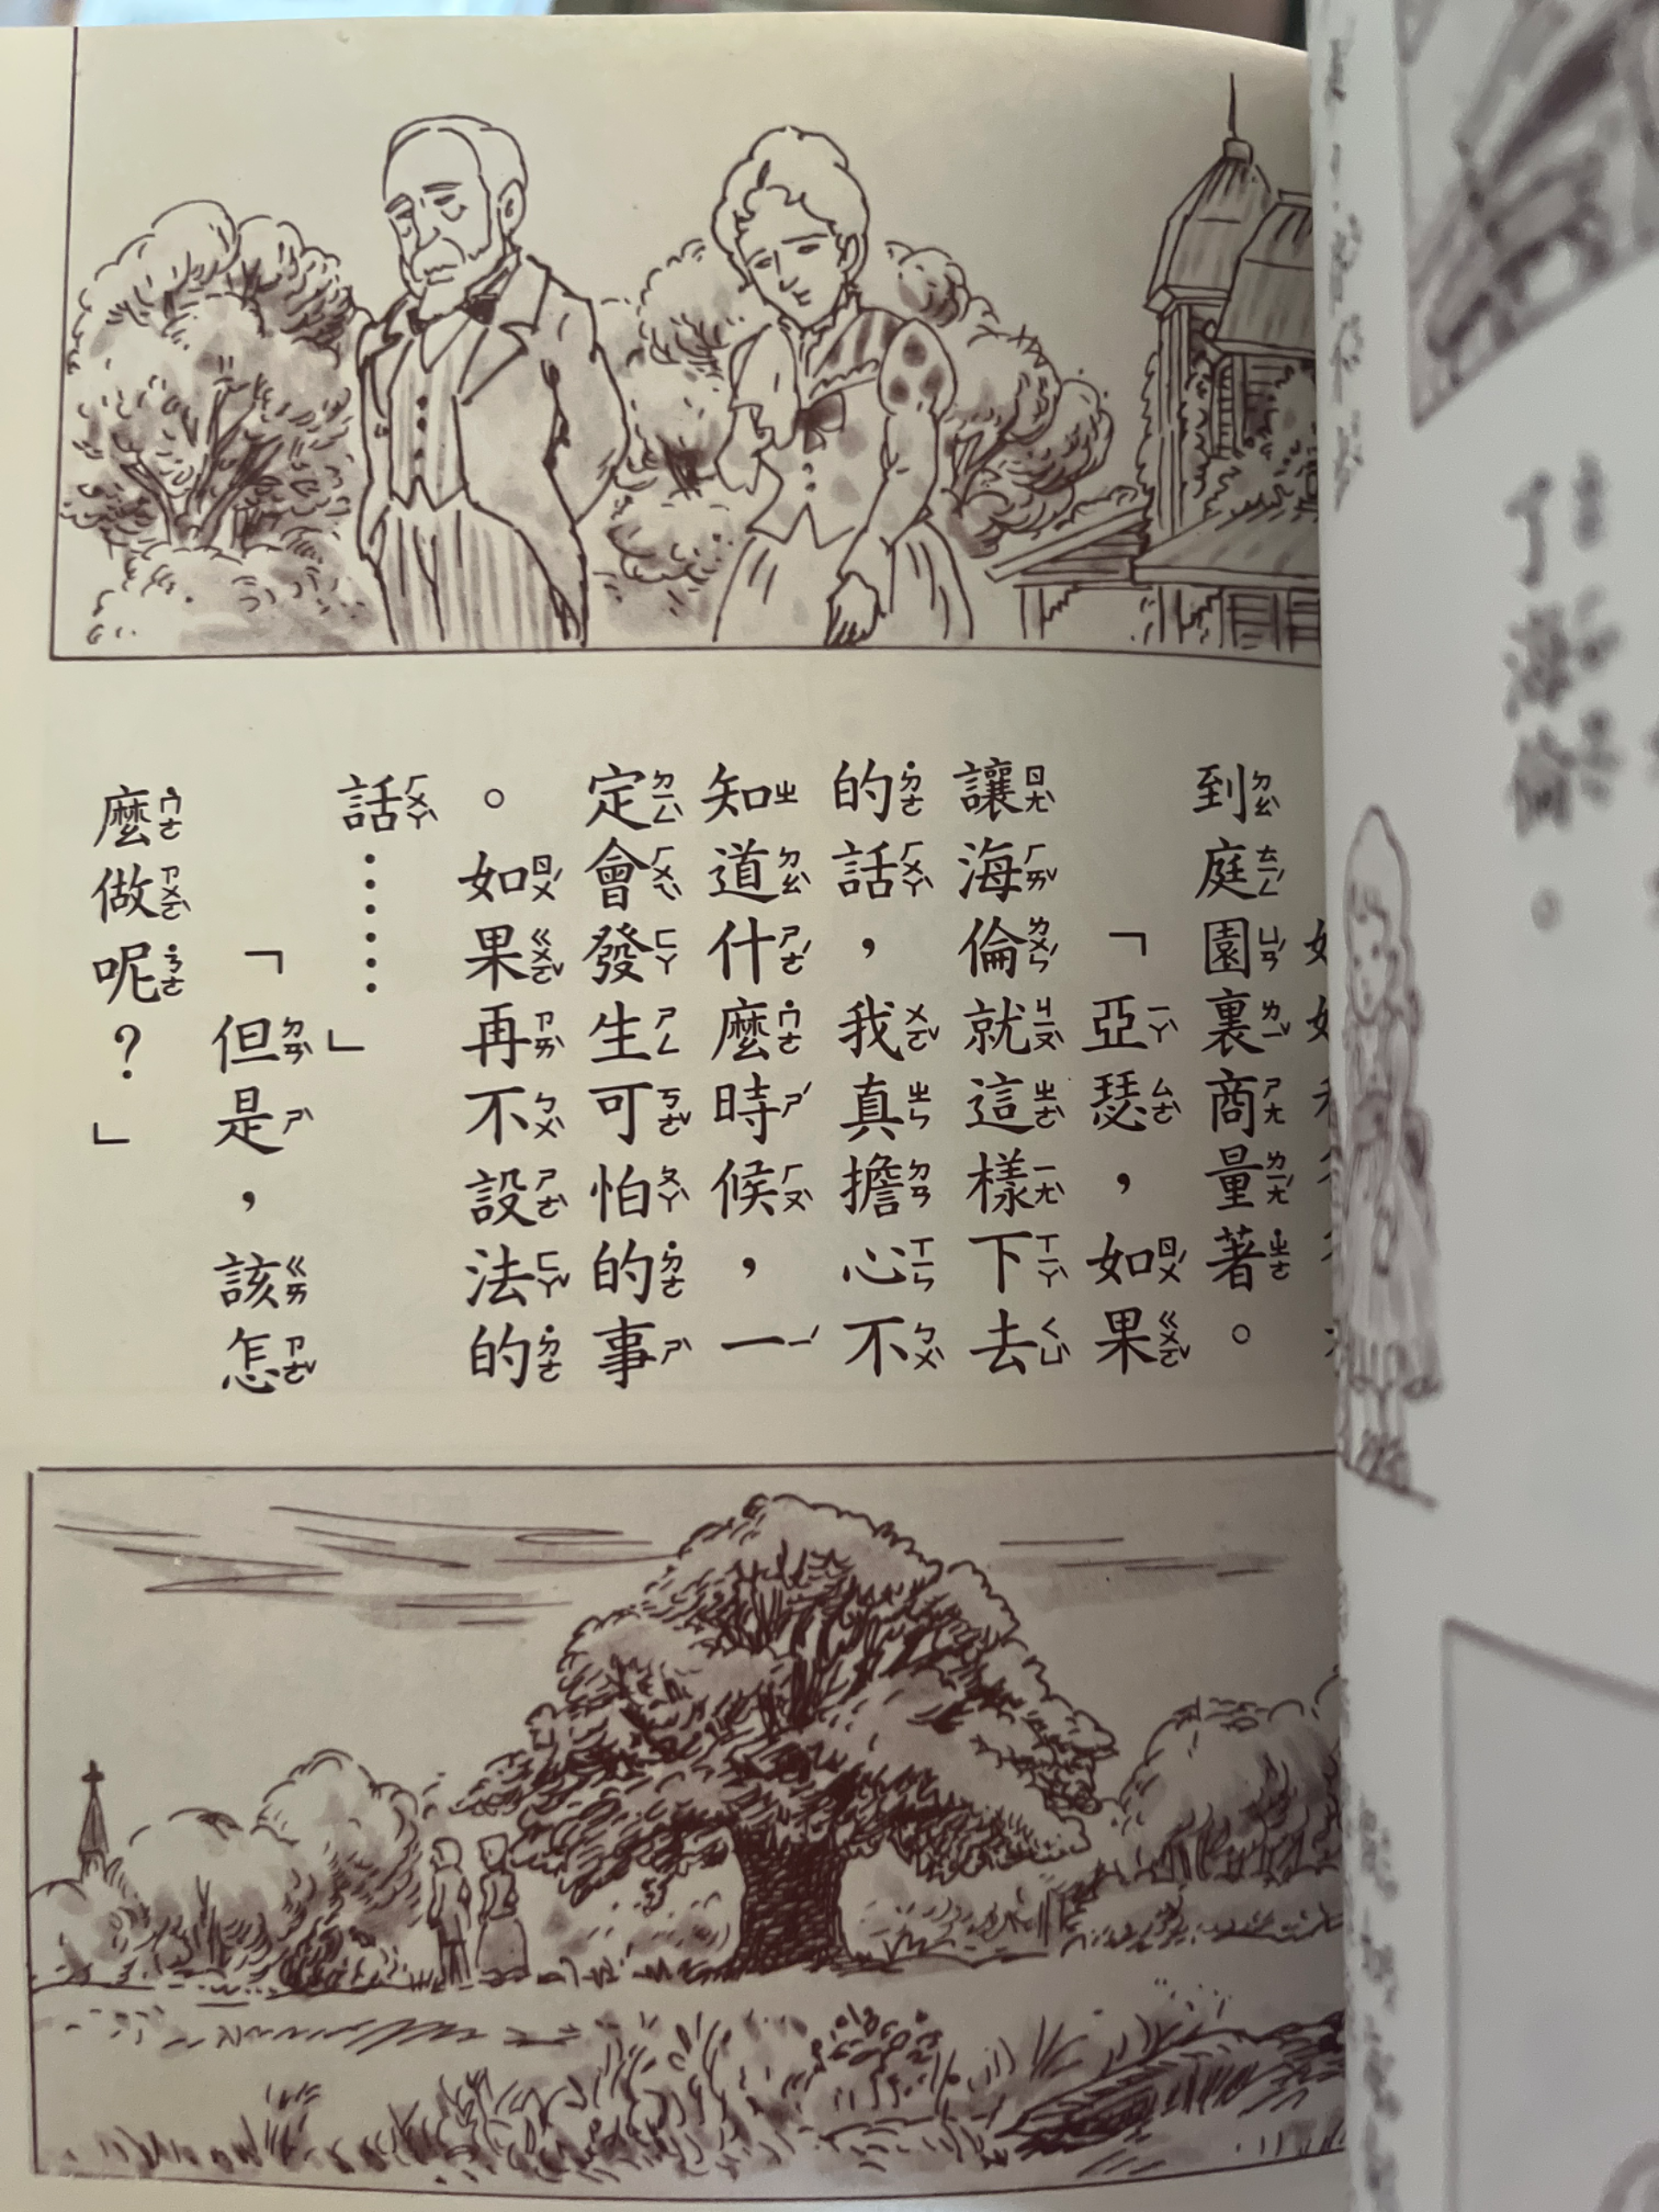 到庭園裏商量著。
「亞瑟，如果
讓海倫就這樣下去
的話，我真擔心不
知道什麼時候，一
定會發生可怕的事
。如果再不設法的
話……」
「但是，該怎
麼做呢？」